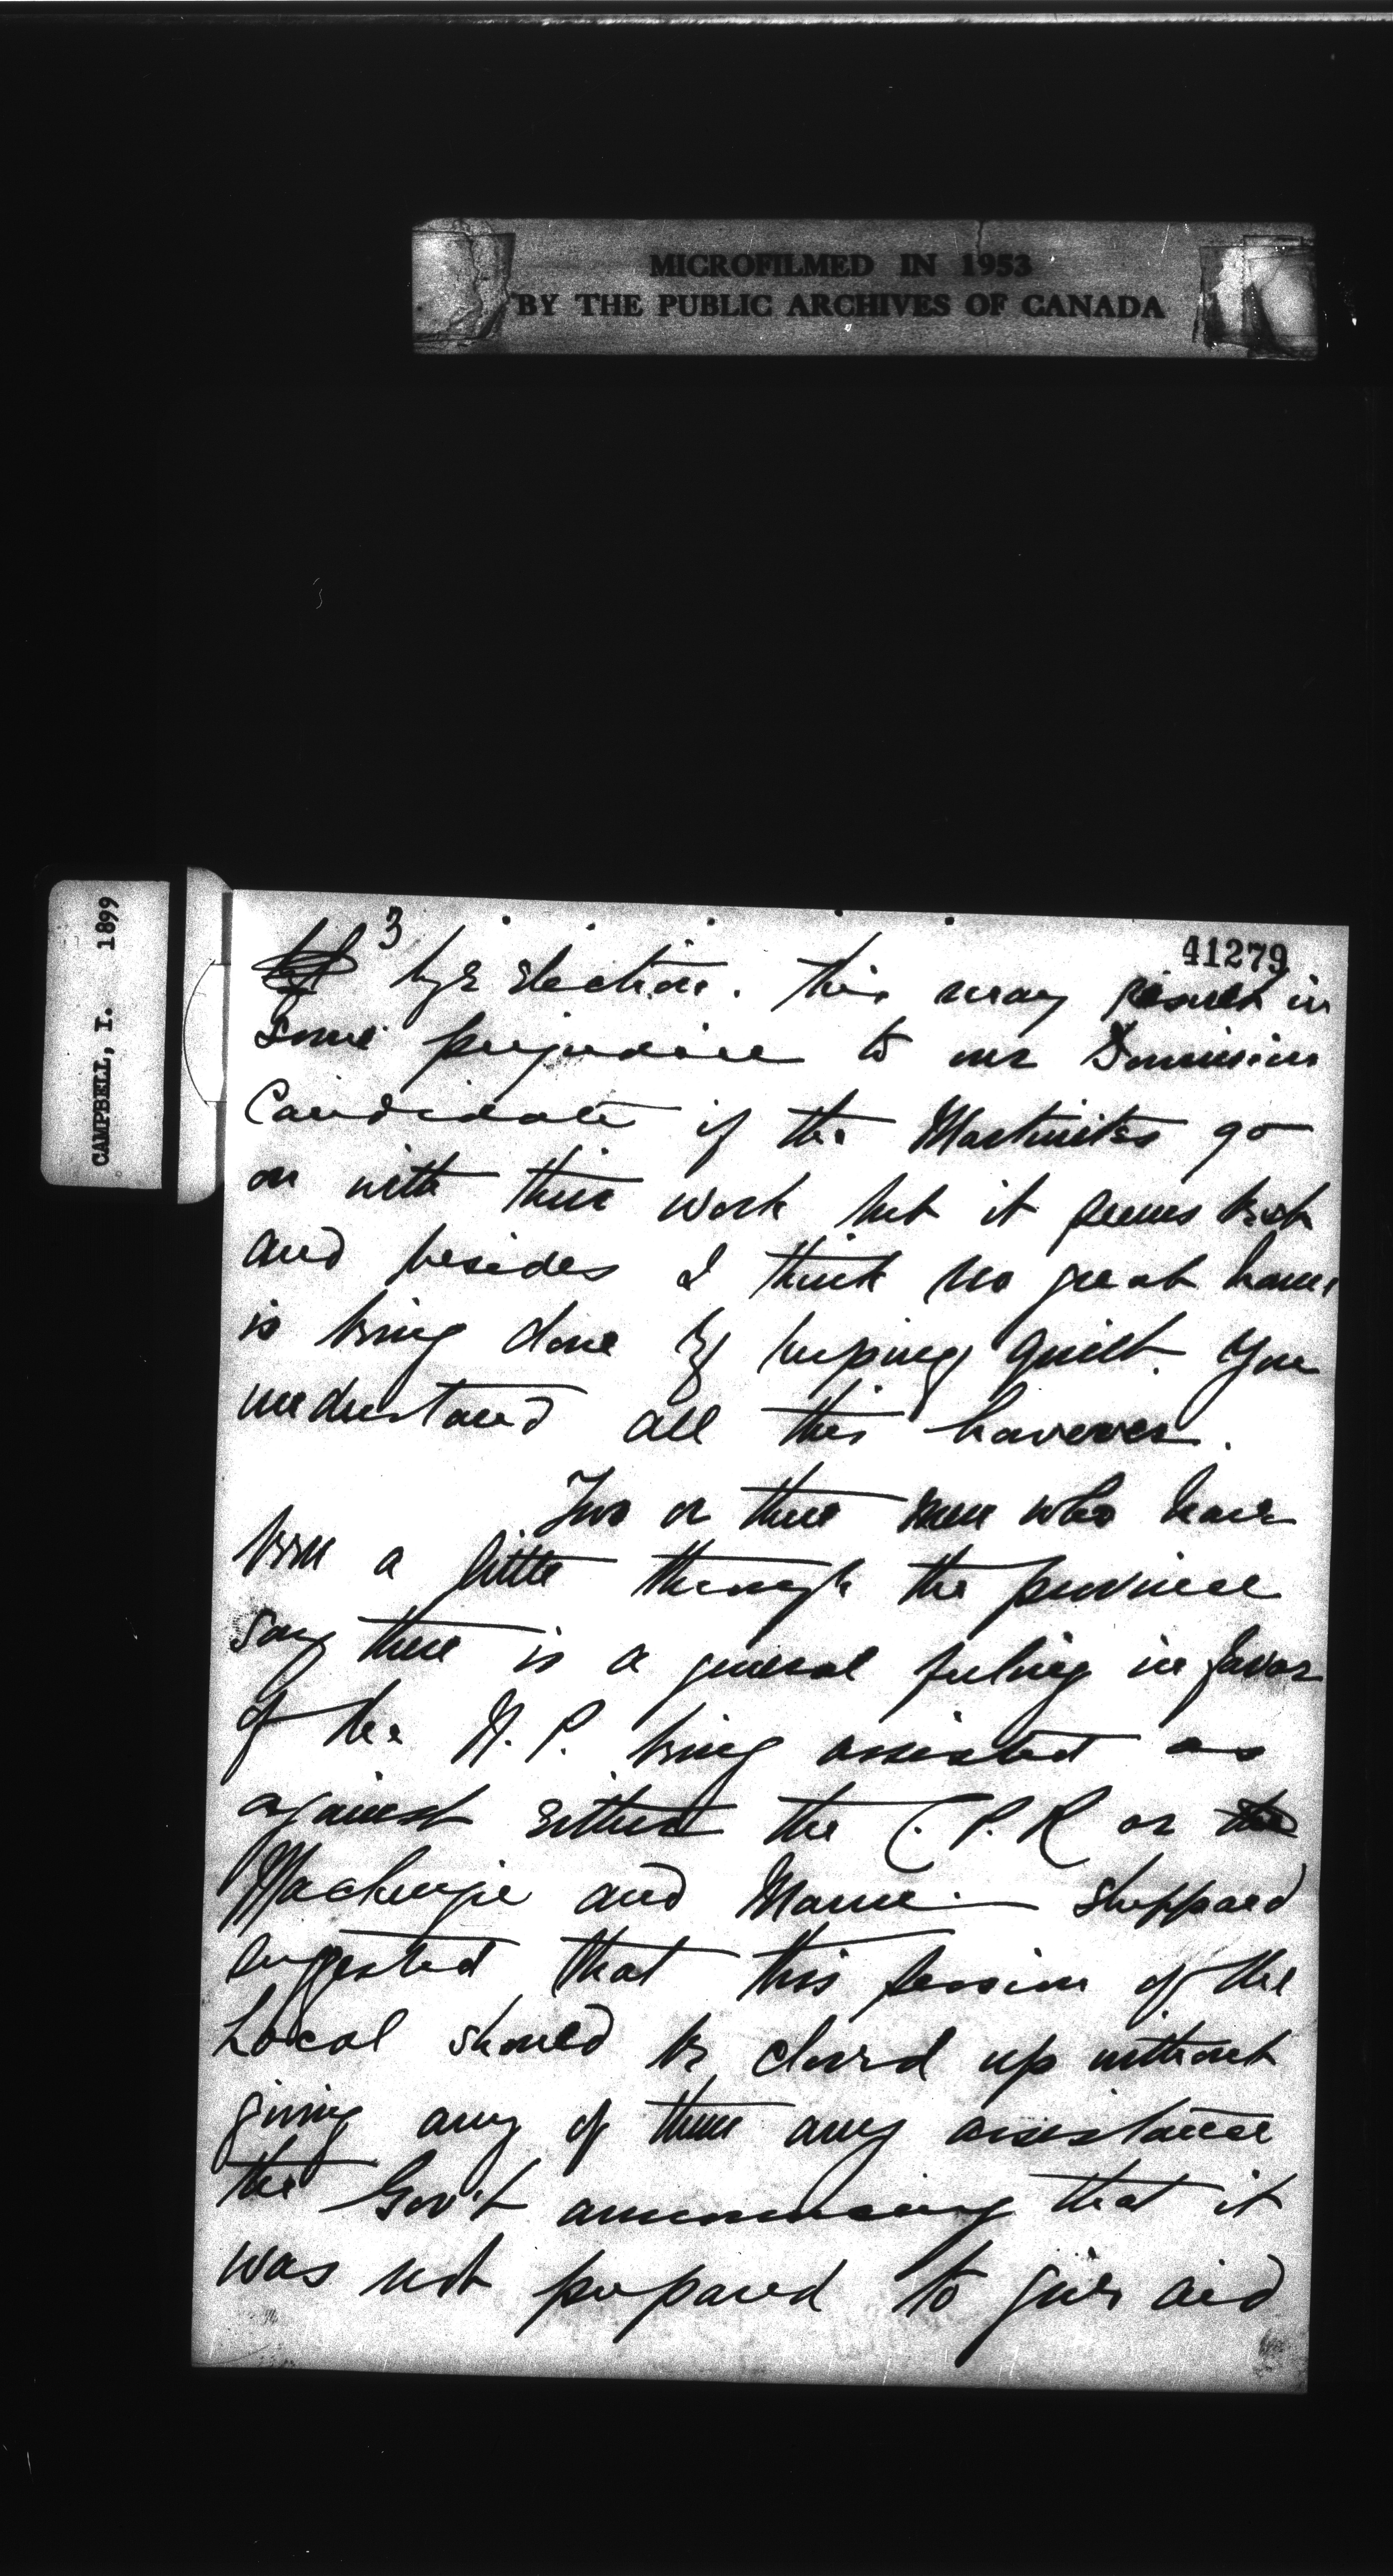 MICROFILMED IN 1953
BY THE PUBLIC ARCHIVES OF CANADA
CAMPBELL, I. 1899
3
41279
bye election. This may result in
some prejudice to our Dominion
Candidate if the Martinites go
on with their work but it seems best
and besides I think no great harm
is being done by keeping quiet. You
understand all this however.
Two or three men who have
been a little through the province
say there is a general feeling in favor
of the N. P. being assisted as
against either the C. P. R or the
Mackenzie and Mann. Sheppard
suggested that this session of the
Local should be closed up without
giving any of them any assistance
the Gov't announcing that it
was not prepared to give aid